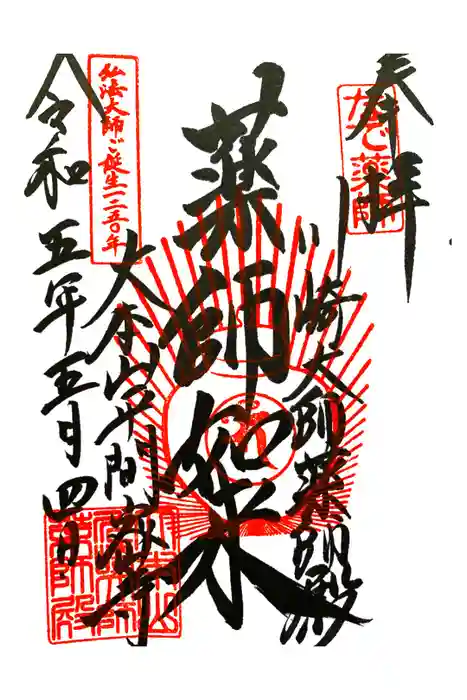 奉拝
かなで薬師
川崎大師薬師殿
薬師如来
大本山平間寺
弘法大師ご誕生一二五〇年
令和五年五月四日